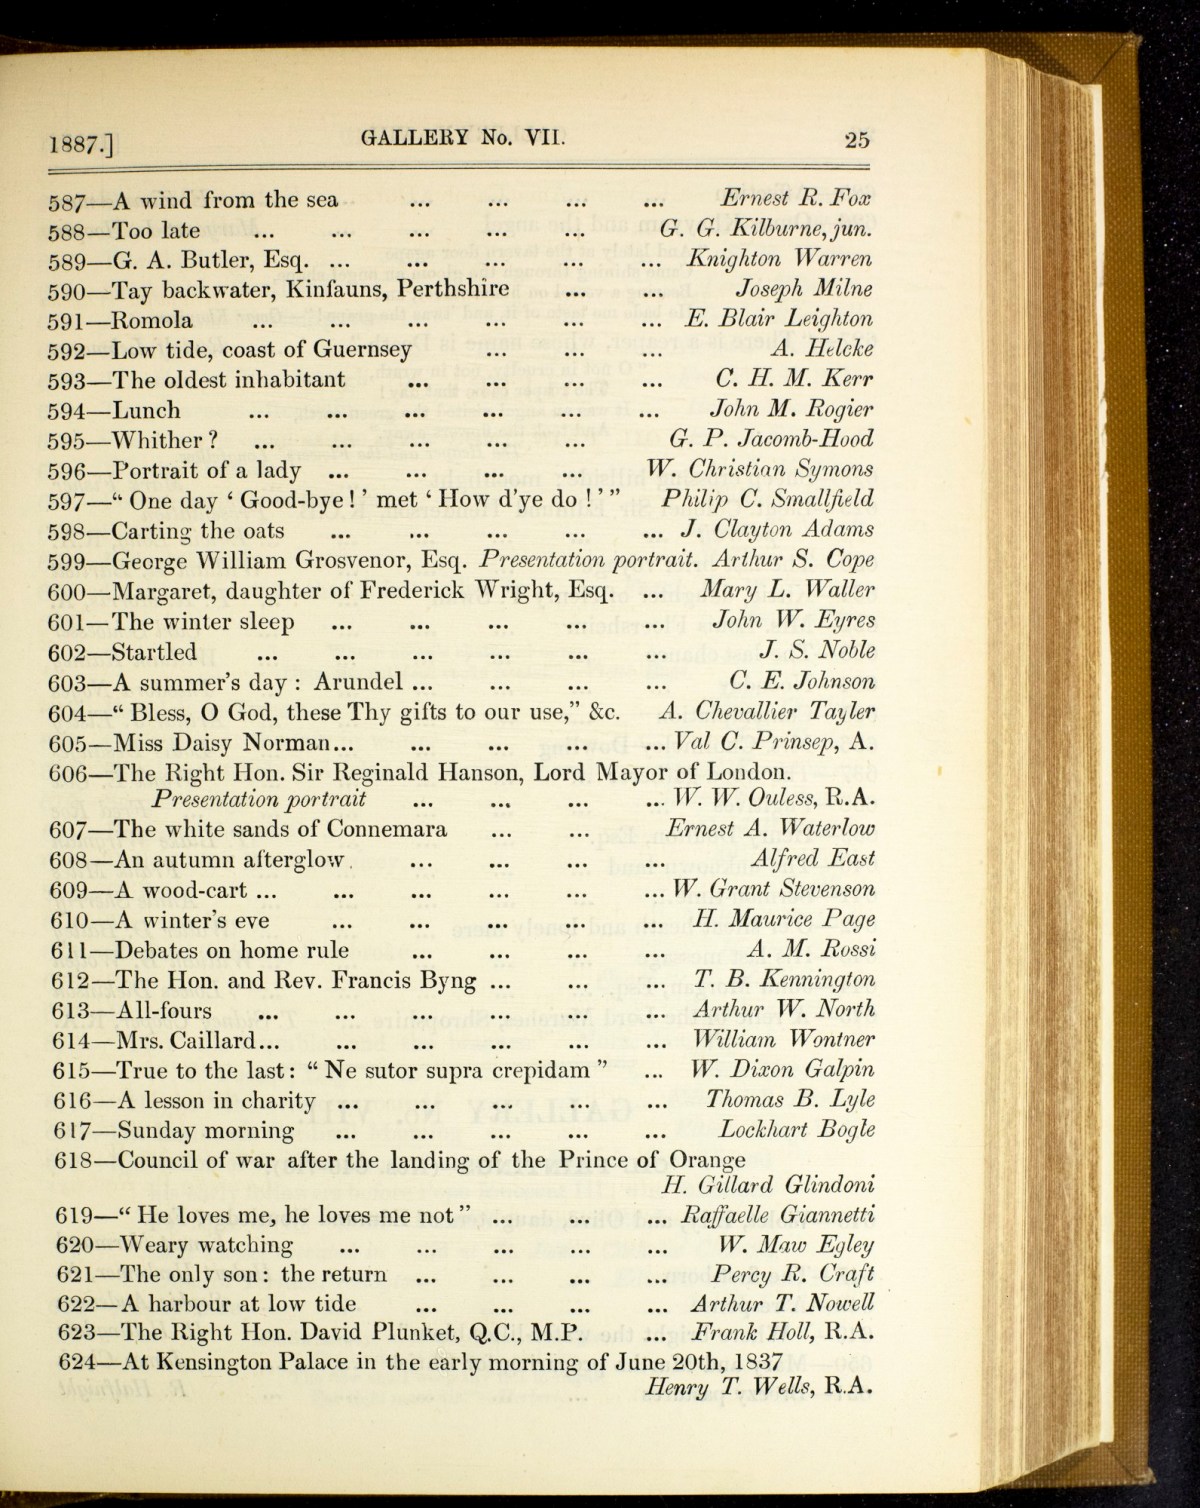 1887.] GALLERY No. VII. 25
587—A wind from the sea ... ... ... ... Ernest R. Fox
588—Too late ... ... ... ... ... G. G. Kilburne, jun.
589—G. A. Butler, Esq. ... ... ... ... ... Knighton Warren
590—Tay backwater, Kinfauns, Perthshire ... ... Joseph Milne
591—Romola ... ... ... ... ... ... E. Blair Leighton
592—Low tide, coast of Guernsey ... ... ... A. Helcke
593—The oldest inhabitant ... ... ... ... C. H. M. Kerr
594—Lunch ... ... ... ... ... ... John M. Rogier
595—Whither? ... ... ... ... ... G. P. Jacomb-Hood
596—Portrait of a lady ... ... ... ... W. Christian Symons
597—“ One day ‘ Good-bye! ’ met ‘ How d’ye do ! ’ ” Philip C. Smallfield
598—Carting the oats ... ... ... ... ... J. Clayton Adams
599—George William Grosvenor, Esq. Presentation portrait. Arthur S. Cope
600—Margaret, daughter of Frederick Wright, Esq. ... Mary L. Waller
601—The winter sleep ... ... ... ... ... John W. Eyres
602—Startled ... ... ... ... ... ... J. S. Noble
603—A summer’s day : Arundel ... ... ... ... C. E. Johnson
604—“ Bless, O God, these Thy gifts to our use,” &c. A. Chevallier Tayler
605—Miss Daisy Norman... ... ... ... ... Val C. Prinsep, A.
606—The Right Hon. Sir Reginald Hanson, Lord Mayor of London.
Presentation portrait ... ... ... ... W. W. Ouless, R.A.
607—The white sands of Connemara ... ... Ernest A. Waterlow
608—An autumn afterglow ... ... ... ... Alfred East
609—A wood-cart ... ... ... ... ... ... W. Grant Stevenson
610—A winter’s eve ... ... ... ... ... H. Maurice Page
611—Debates on home rule ... ... ... ... A. M. Rossi
612—The Hon. and Rev. Francis Byng ... ... ... T. B. Kennington
613—All-fours ... ... ... ... ... ... Arthur W. North
614—Mrs. Caillard... ... ... ... ... ... William Wontner
615—True to the last : “ Ne sutor supra crepidam ” ... W. Dixon Galpin
616—A lesson in charity ... ... ... ... ... Thomas B. Lyle
617—Sunday morning ... ... ... ... ... Lockhart Bogle
618—Council of war after the landing of the Prince of Orange
H. Gillard Glindoni
619—“ He loves me, he loves me not ” ... ... ... Raffaelle Giannetti
620—Weary watching ... ... ... ... ... W. Maw Egley
621—The only son : the return ... ... ... ... Percy R. Craft
622—A harbour at low tide ... ... ... ... Arthur T. Nowell
623—The Right Hon. David Plunket, Q.C., M.P. ... Frank Holl, R.A.
624—At Kensington Palace in the early morning of June 20th, 1837
Henry T. Wells, R.A.